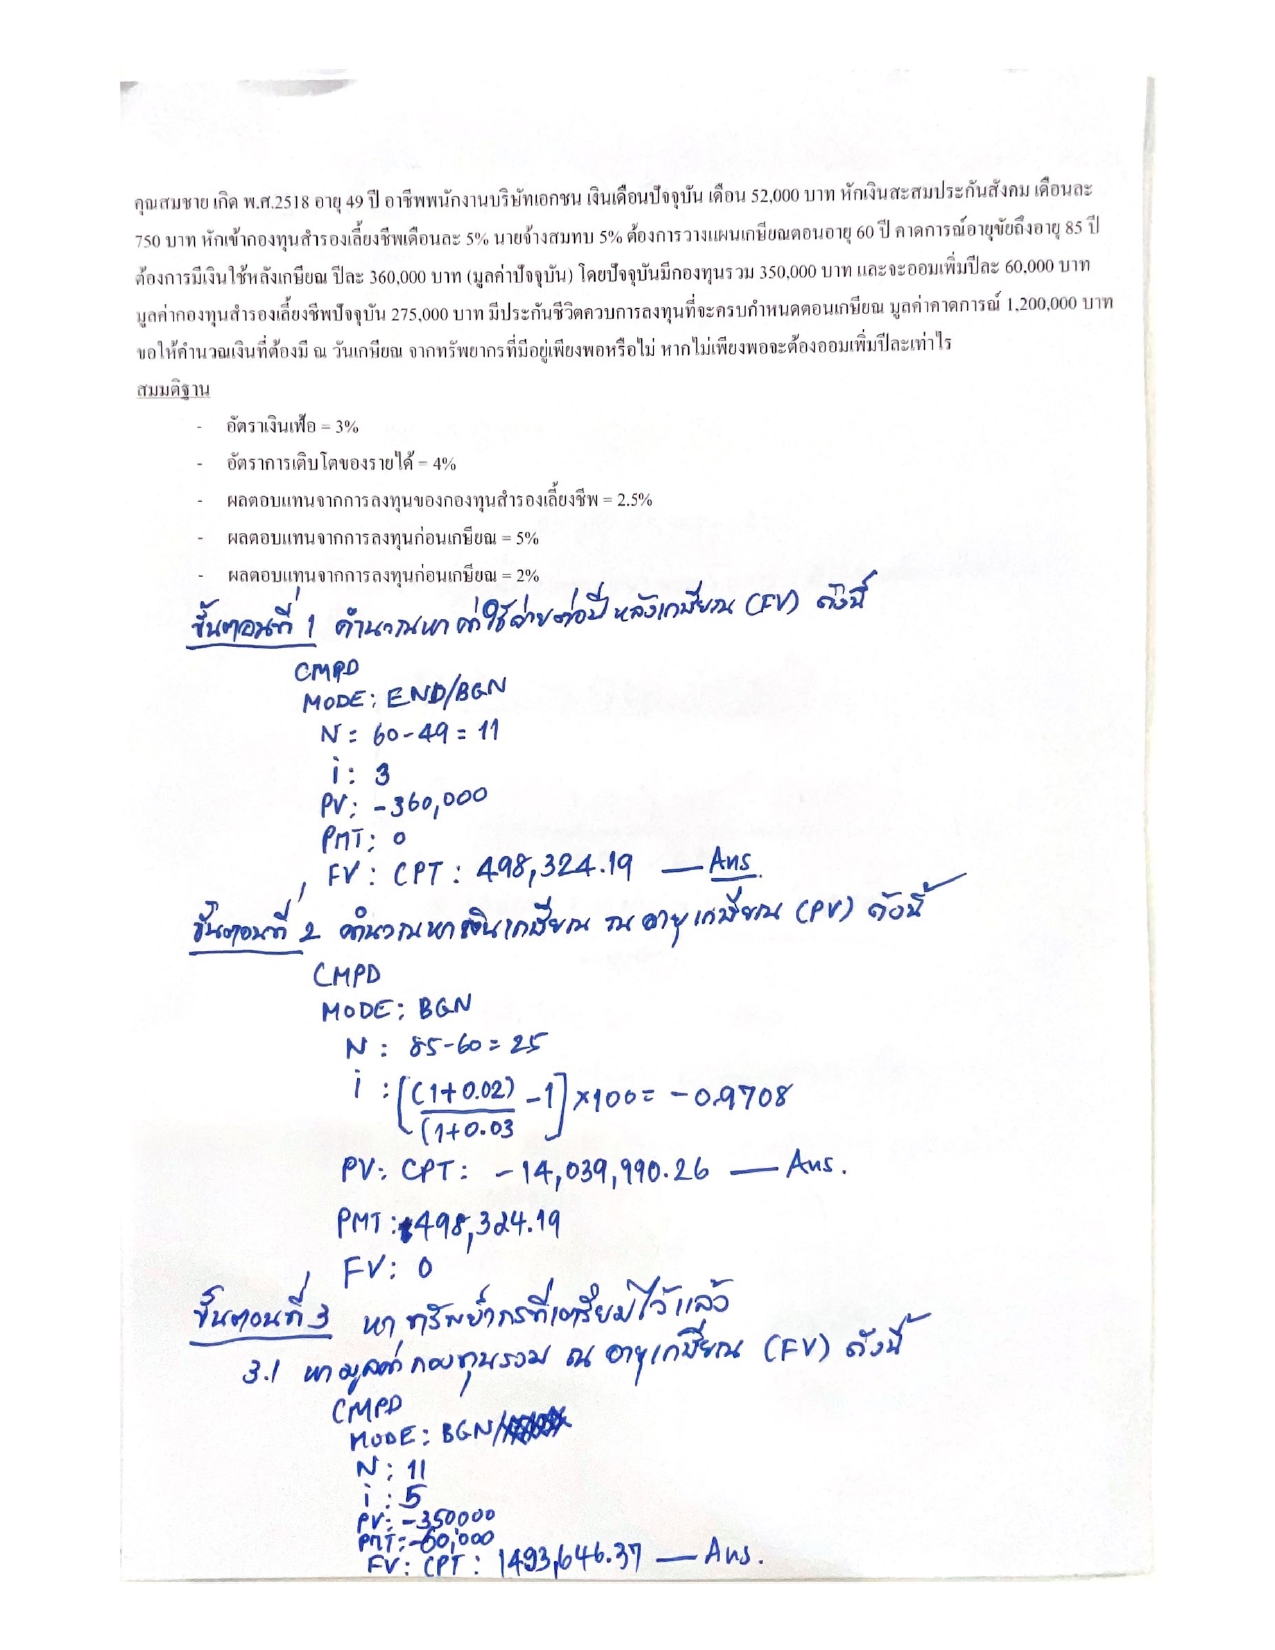 คุณสมชาย เกิด พ.ศ.2518 อายุ 49 ปี อาชีพพนักงานบริษัทเอกชน เงินเดือนปัจจุบัน เดือน 52,000 บาท หักเงินสะสมประกันสังคม เดือนละ
750 บาท หักเข้ากองทุนสำรองเลี้ยงชีพเดือนละ 5% นายจ้างสมทบ 5% ต้องการวางแผนเกษียณตอนอายุ 60 ปี คาดการณ์อายุขัยถึงอายุ 85 ปี
ต้องการมีเงินใช้หลังเกษียณ ปีละ 360,000 บาท (มูลค่าปัจจุบัน) โดยปัจจุบันมีกองทุนรวม 350,000 บาท และจะออมเพิ่มปีละ 60,000 บาท
มูลค่ากองทุนสำรองเลี้ยงชีพปัจจุบัน 275,000 บาท มีประกันชีวิตควบการลงทุนที่จะครบกำหนดตอนเกษียณ มูลค่าคาดการณ์ 1,200,000 บาท
ขอให้คำนวณเงินที่ต้องมี ณ วันเกษียณ จากทรัพยากรที่มีอยู่เพียงพอหรือไม่ หากไม่เพียงพอจะต้องออมเพิ่มปีละเท่าไร
สมมติฐาน
- อัตราเงินเฟ้อ = 3%
- อัตราการเติบโตของรายได้ = 4%
- ผลตอบแทนจากการลงทุนของกองทุนสำรองเลี้ยงชีพ = 2.5%
- ผลตอบแทนจากการลงทุนก่อนเกษียณ = 5%
- ผลตอบแทนจากการลงทุนก่อนเกษียณ = 2%
ขั้นตอนที่ 1 คำนวณหาค่าใช้จ่ายต่อปีหลังเกษียณ (FV) ดังนี้
CMPD
MODE: END/BGN
N = 60-49 = 11
i : 3
PV: -360,000
PMT: 0
FV : CPT : 498,324.19 — Ans.
ขั้นตอนที่ 2 คำนวณหาเงินเกษียณ ณ อายุเกษียณ (PV) ดังนี้
CMPD
MODE: BGN
N : 85-60 = 25
i : [(1+0.02)/(1+0.03 -1]×100 = -0.9708
PV: CPT: -14,039,990.26 — Ans.
PMT: 498,324.19
FV: 0
ขั้นตอนที่ 3 หาทรัพยากรที่เตรียมไว้แล้ว
3.1 หามูลค่ากองทุนรวม ณ อายุเกษียณ (FV) ดังนี้
CMPD
MODE: BGN/
N : 11
i : 5
PV: -350000
PMT: -60,000
FV: CPT: 1493,646.37 — Ans.